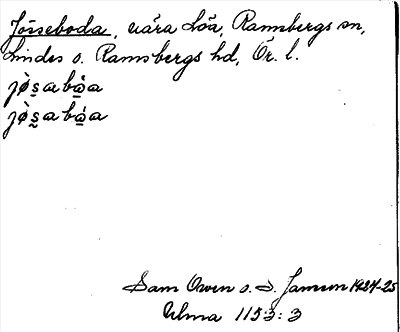 Jösseboda, nära Löa, Ramsbergs sn,
Lindes o. Ramsbergs hd, Ör. l.
jø̀s̠abὼ̠a
jø̀s̠abὼ̠a
Sam Owen o. S. Janson 1924-25
Ulma 115 3: 3